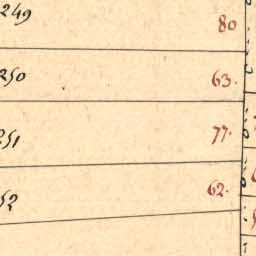 249 80
250 63.
251 77.
52 62.